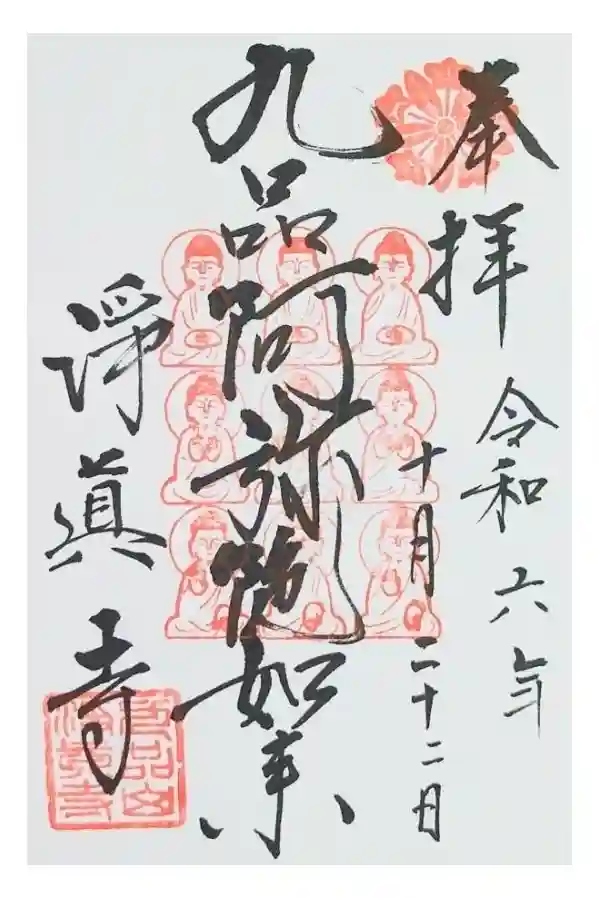 奉拝
令和六年
十月二十二日
九品阿弥陀如来
淨真寺